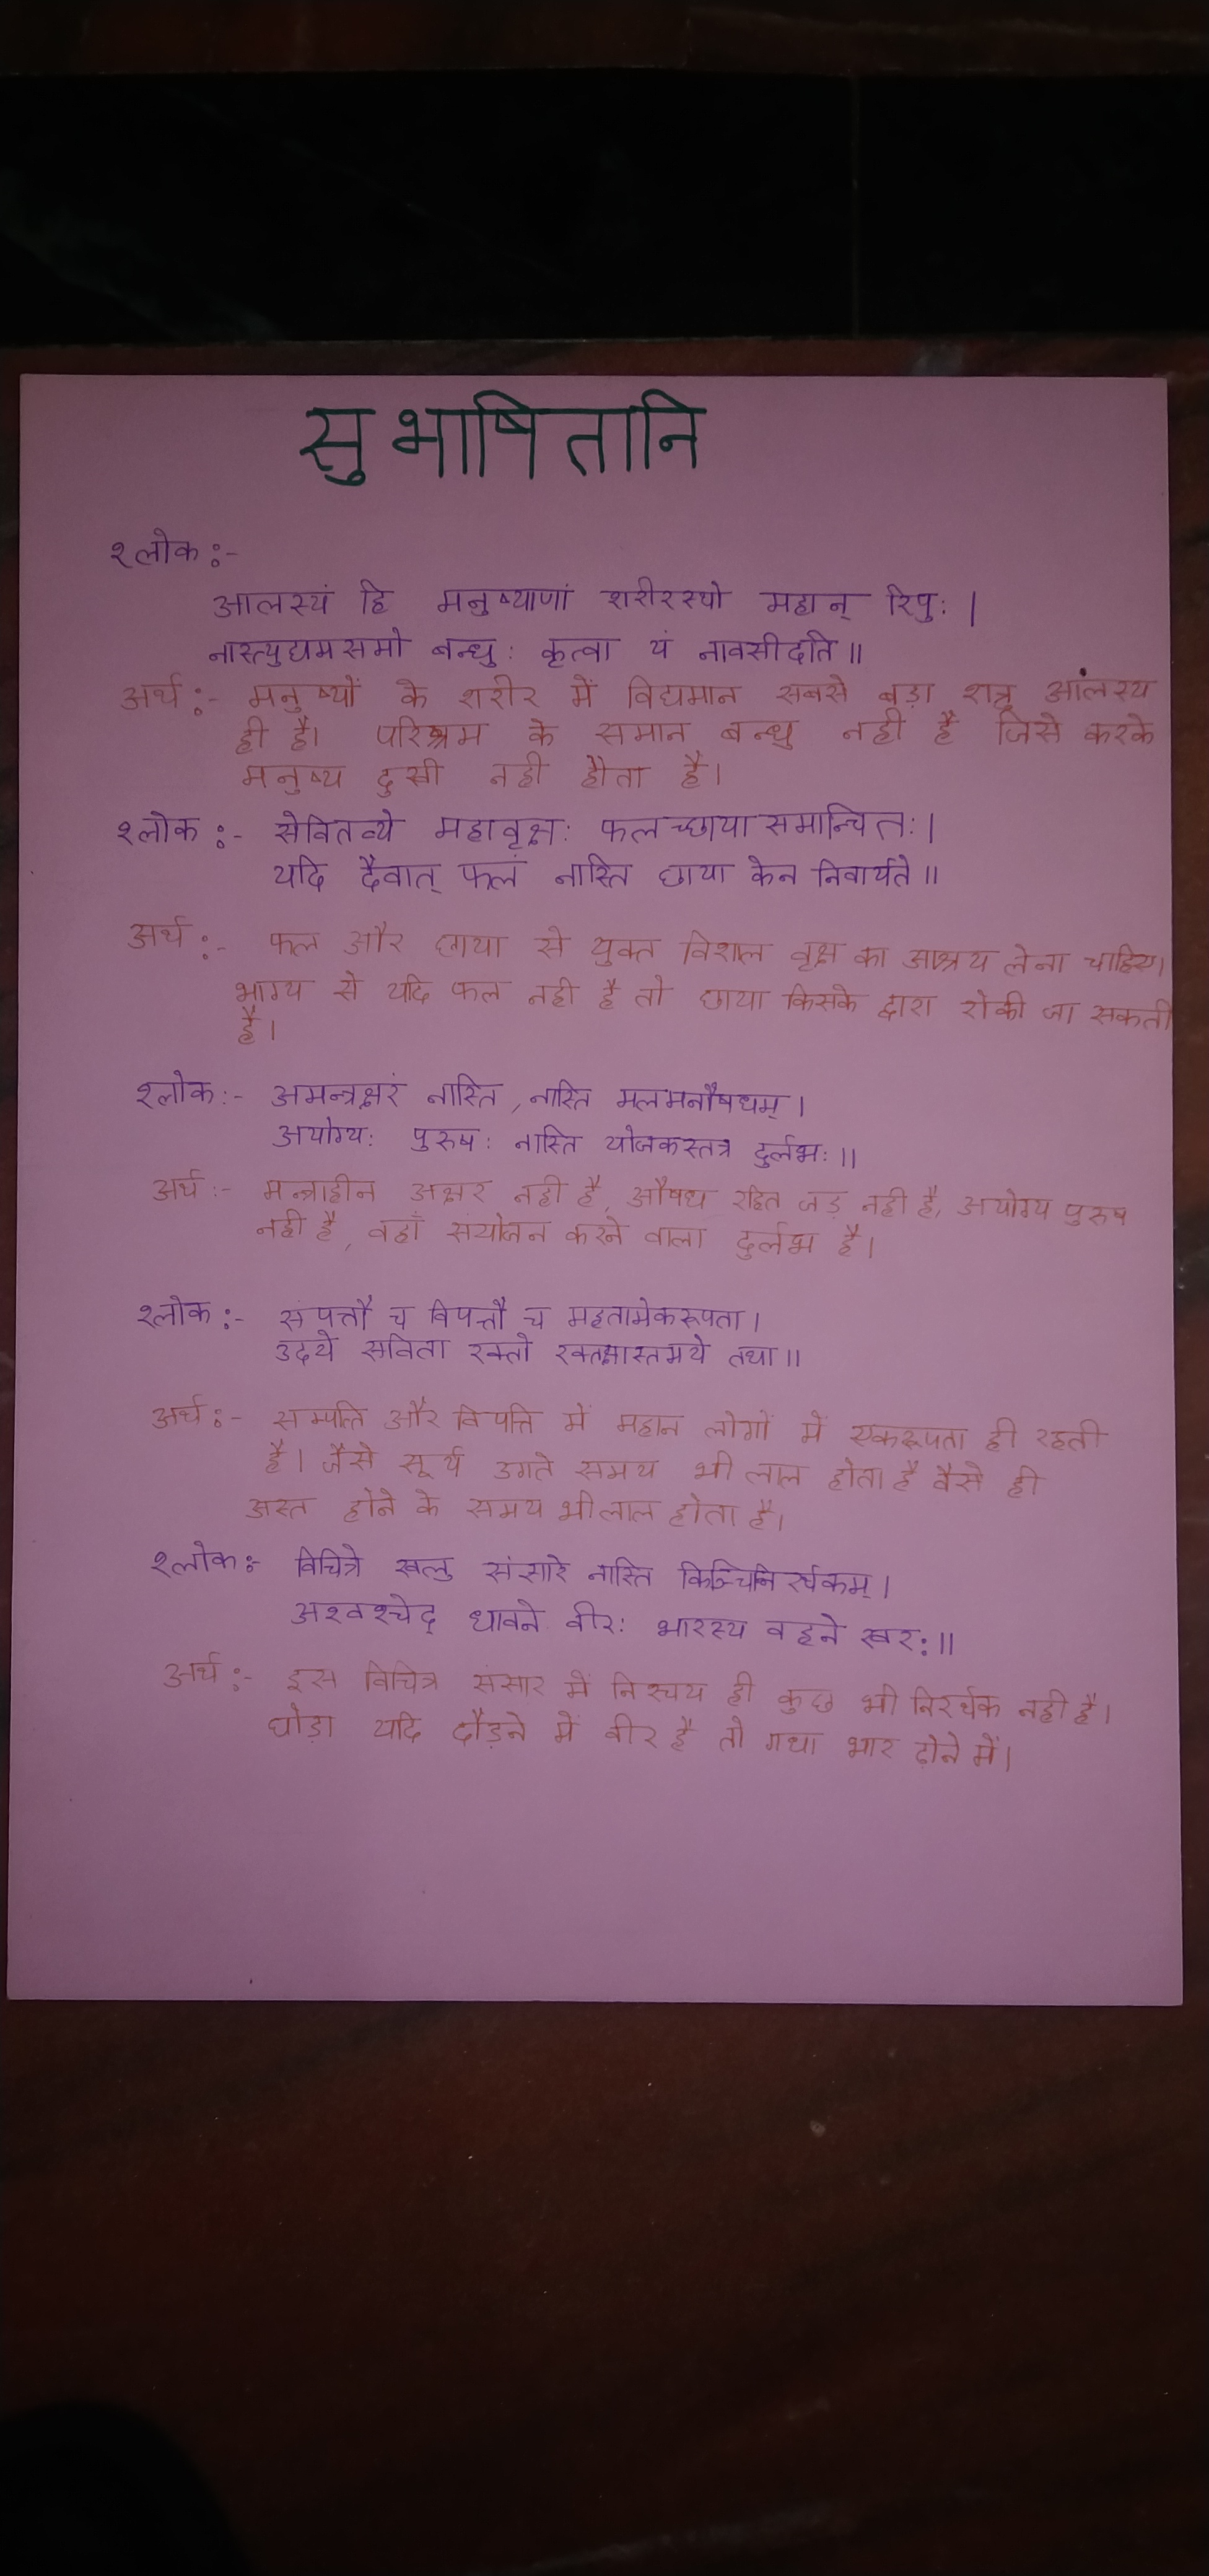 सुभाषितानि
श्लोक :-
आलस्यं हि मनुष्याणां शरीरस्थो महान् रिपुः |
नास्त्युद्यमसमो बन्धुः कृत्वा यं नावसीदति ||
अर्थ :- मनुष्यों के शरीर में विद्यमान सबसे बड़ा शत्रु आलस्य
ही है। परिश्रम के समान बन्धु नही है जिसे करके
मनुष्य दुखी नही होता है।
श्लोक :- सेवितव्ये महावृक्षः फलच्छाया समान्वितः |
यदि दैवात् फलं नास्ति छाया केन निवार्यते ||
अर्थ :- फल और छाया से युक्त विशाल वृक्ष का आश्रय लेना चाहिए।
भाग्य से यदि फल नही है तो छाया किसके द्वारा रोकी जा सकती
है।
श्लोक :- अमन्त्रक्षरं नास्ति , नास्ति मूलमनौषधम् |
अयोग्यः पुरुषः नास्ति योजकस्तत्र दुर्लभः ||
अर्थ :- मन्त्राहीन अक्षर नही है, औषध रहित जड़ नही है, अयोग्य पुरुष
नही है, वहाँ संयोजन करने वाला दुर्लभ है।
श्लोक :- संपत्तौ च विपत्तौ च महतामेकरूपता |
उदये सविता रक्तो तथा ||
अर्थ :- सम्पति और विपत्ति में महान लोगों में एकरूपता ही रहती
है। जैसे सूर्य उगते समय भी लाल होता है वैसे ही
अस्त होने के समय भी लाल होता है।
श्लोक :- विचित्रे खलु संसारे नास्ति
अश्वश्चेद् धावने वीरः भारस्य वहने खरः ||
अर्थ :- इस विचित्र संसार में निश्चय ही कुछ भी निरर्थक नही है।
घोड़ा यदि दौड़ने में वीर है तो गधा भार ढोने में।